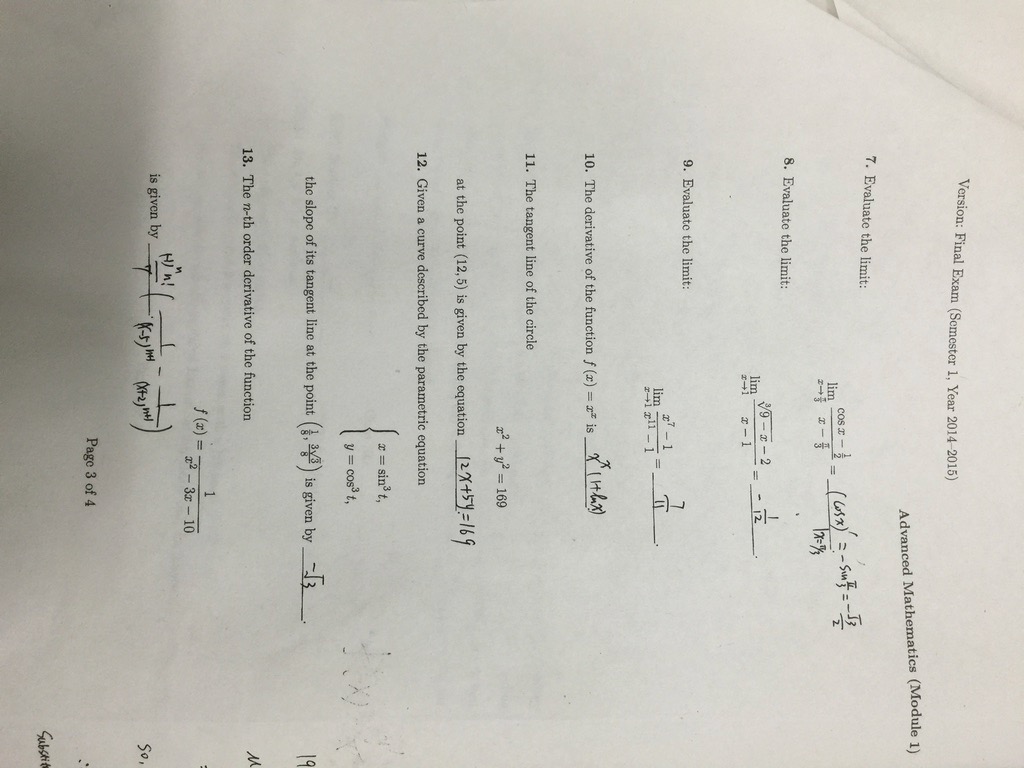 Version: Final Exam (Semester 1, Year 2014–2015)
Advanced Mathematics (Module 1)
7. Evaluate the limit:
lim x→π/3 (cos x − 1/2)/(x − π/3) = (cosx)′|x=π/3 = −sin π/3 = −√3/2
8. Evaluate the limit:
lim x→1 (∛(9 − x) − 2)/(x − 1) = −1/12.
9. Evaluate the limit:
lim x→1 (x⁷ − 1)/(x¹¹ − 1) = 7/11.
10. The derivative of the function f (x) = xˣ is xˣ(1+lnx)
11. The tangent line of the circle
x² + y² = 169
at the point (12, 5) is given by the equation 12x+5y=169
12. Given a curve described by the parametric equation
{ x = sin³ t,
y = cos³ t,
the slope of its tangent line at the point (1/8, 3√3/8) is given by −√3.
13. The n-th order derivative of the function
f (x) = 1/(x² − 3x − 10)
is given by (-1)ⁿ n!/7 (1/(x-5)ⁿ⁺¹ − 1/(x+2)ⁿ⁺¹)
Page 3 of 4
19
so,
∴